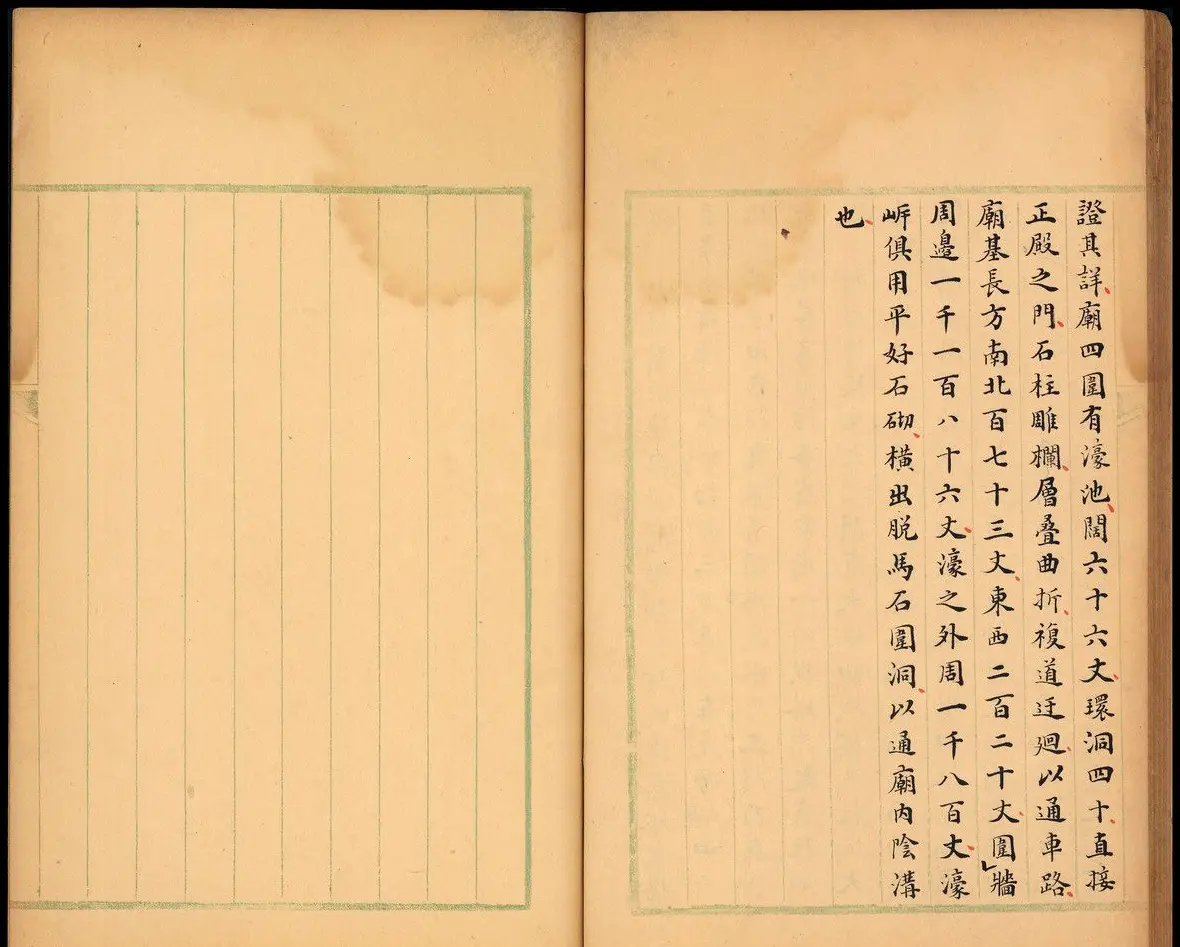 證其詳廟四圍有濠池闊六十六丈環洞四十直接
正殿之門石柱雕欄層叠曲折複道迂廻以通車路
廟基長方南北百七十三丈東西二百二十丈圍牆
周邉一千一百八十六丈濠之外周一千八百丈濠
㟁俱用平好石砌橫出脱馬石圍洞以通廟内陰溝
也